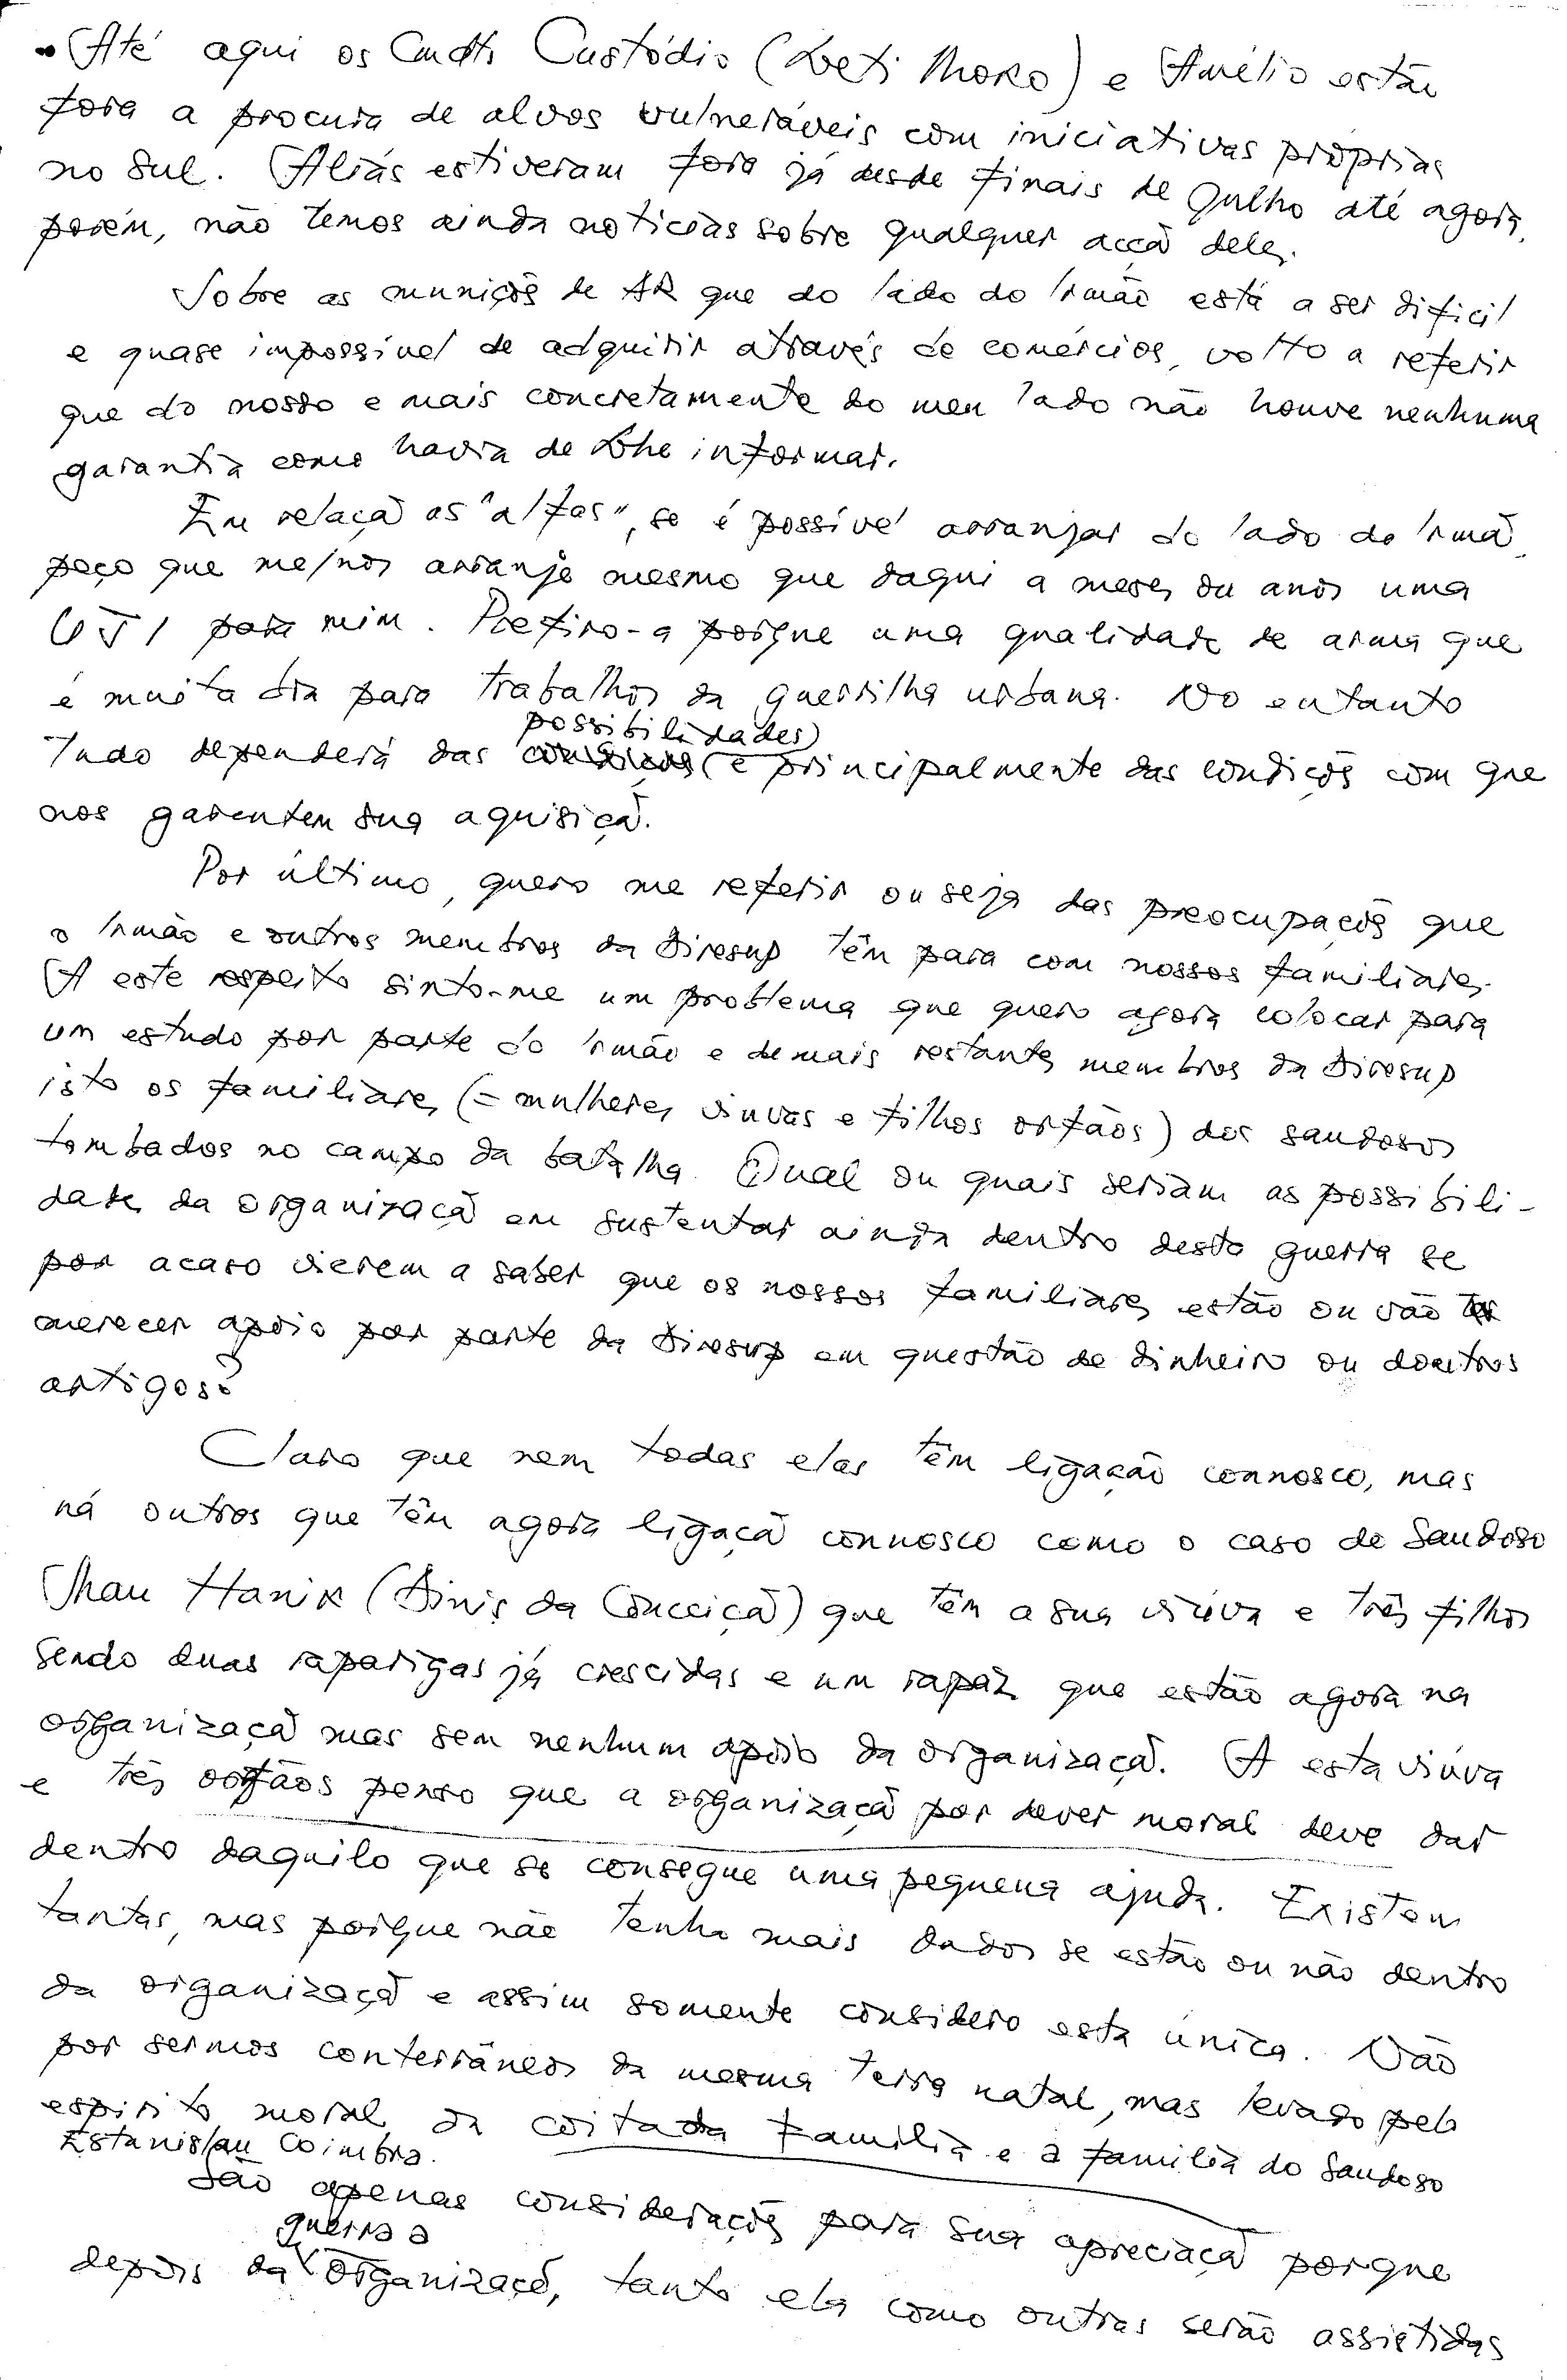 Até aqui os Cmdts Custódio (Leti Moko) e Aurélio estão
fora a procura de alvos vulneráveis com iniciativas próprias
no sul. Aliás estiveram fora já desde finais de Julho até agora,
porém, não temos ainda noticias sobre qualquer acção deles.
Sobre as munições de AR que do lado do Irmão está a ser dificil
e quase impossível de adquirir através de comércios, volto a referir
que do nosso e mais concretamente do meu lado não houve nenhuma
garantia como havia de Lhe informar.
Em relação as "alfas", se é possível arranjar do lado do Irmão,
peço que me/nos arranje mesmo que daqui a meses ou anos uma
para mim. Prefiro-a porque uma qualidade de arma que
é muita boa para trabalhos da guerrilha urbana. No entanto
possibilidades)
Tudo dependerá das (e principalmente das condições com que
nos garentem sua aquisição.
Por último, quero me referir ou seja das preocupações que
o Irmão e outros membros da Diresup têm para com nossos familiares.
A este respeito sinto-me um problema que quero agora colocar para
um estudo por parte do Irmão e demais restantes membros da Diresup
isto os familiares (= mulheres viuvas e filhos orfãos) dos saudosos
tombados no campo da batalha. Qual ou quais seriam as possibili-
dades da organização em sustentar ainda dentro desta guerra se
por acaso vierem a saber que os nossos familiares estão ou vão
merecer apoio por parte da Diresup em questão de dinheiro ou doutros
artigos?
Claro que nem todas elas têm ligação connosco, mas
há outros que têm agora ligação connosco como o caso de Saudoso
Mau Hanik (Dinis da Conceição) que têm a sua viúva e três filhos
sendo duas raparigas já crescidas e um rapaz que estão agora na
organização mas sem nenhum apoio da organização. A esta viúva
e três orfãos penso que a organização por dever moral deve dar
dentro daquilo que se consegue uma pequena ajuda. Existem
tantas, mas porque não tenho mais dados se estão ou não dentro
da organização e assim somente considero esta única. Não
por sermos conterrâneos da mesma terra natal, mas levado pelo
espirito moral da coitada familia e a familia do Saudoso
Estanislau Coimbra.
São apenas considerações para sua apreciação porque
guerra a
depois da organização, tanto ela como outras serão assistidas